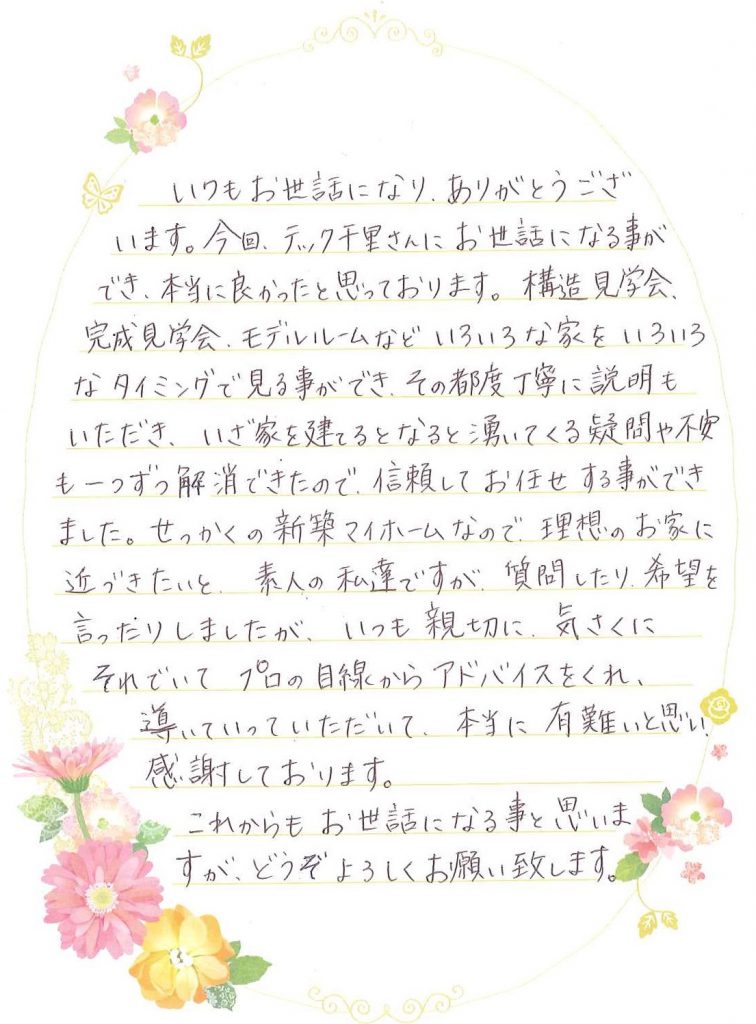 いつもお世話になり、ありがとうござ
います。今回、テック千里さんにお世話になる事が
でき、本当に良かったと思っております。構造見学会、
完成見学会、モデルルームなどいろいろな家をいろいろ
なタイミングで見る事ができ、その都度丁寧に説明も
いただき、いざ家を建てるとなると湧いてくる疑問や不安
も一つずつ解消できたので、信頼してお任せする事ができ
ました。せっかくの新築マイホームなので、理想のお家に
近づきたいと、素人の私達ですが、質問したり、希望を
言ったりしましたが、いつも親切に、気さくに
それでいてプロの目線からアドバイスをくれ、
導いていっていただいて、本当に有難いと思い、
感謝しております。
これからもお世話になる事と思いま
すが、どうぞよろしくお願い致します。